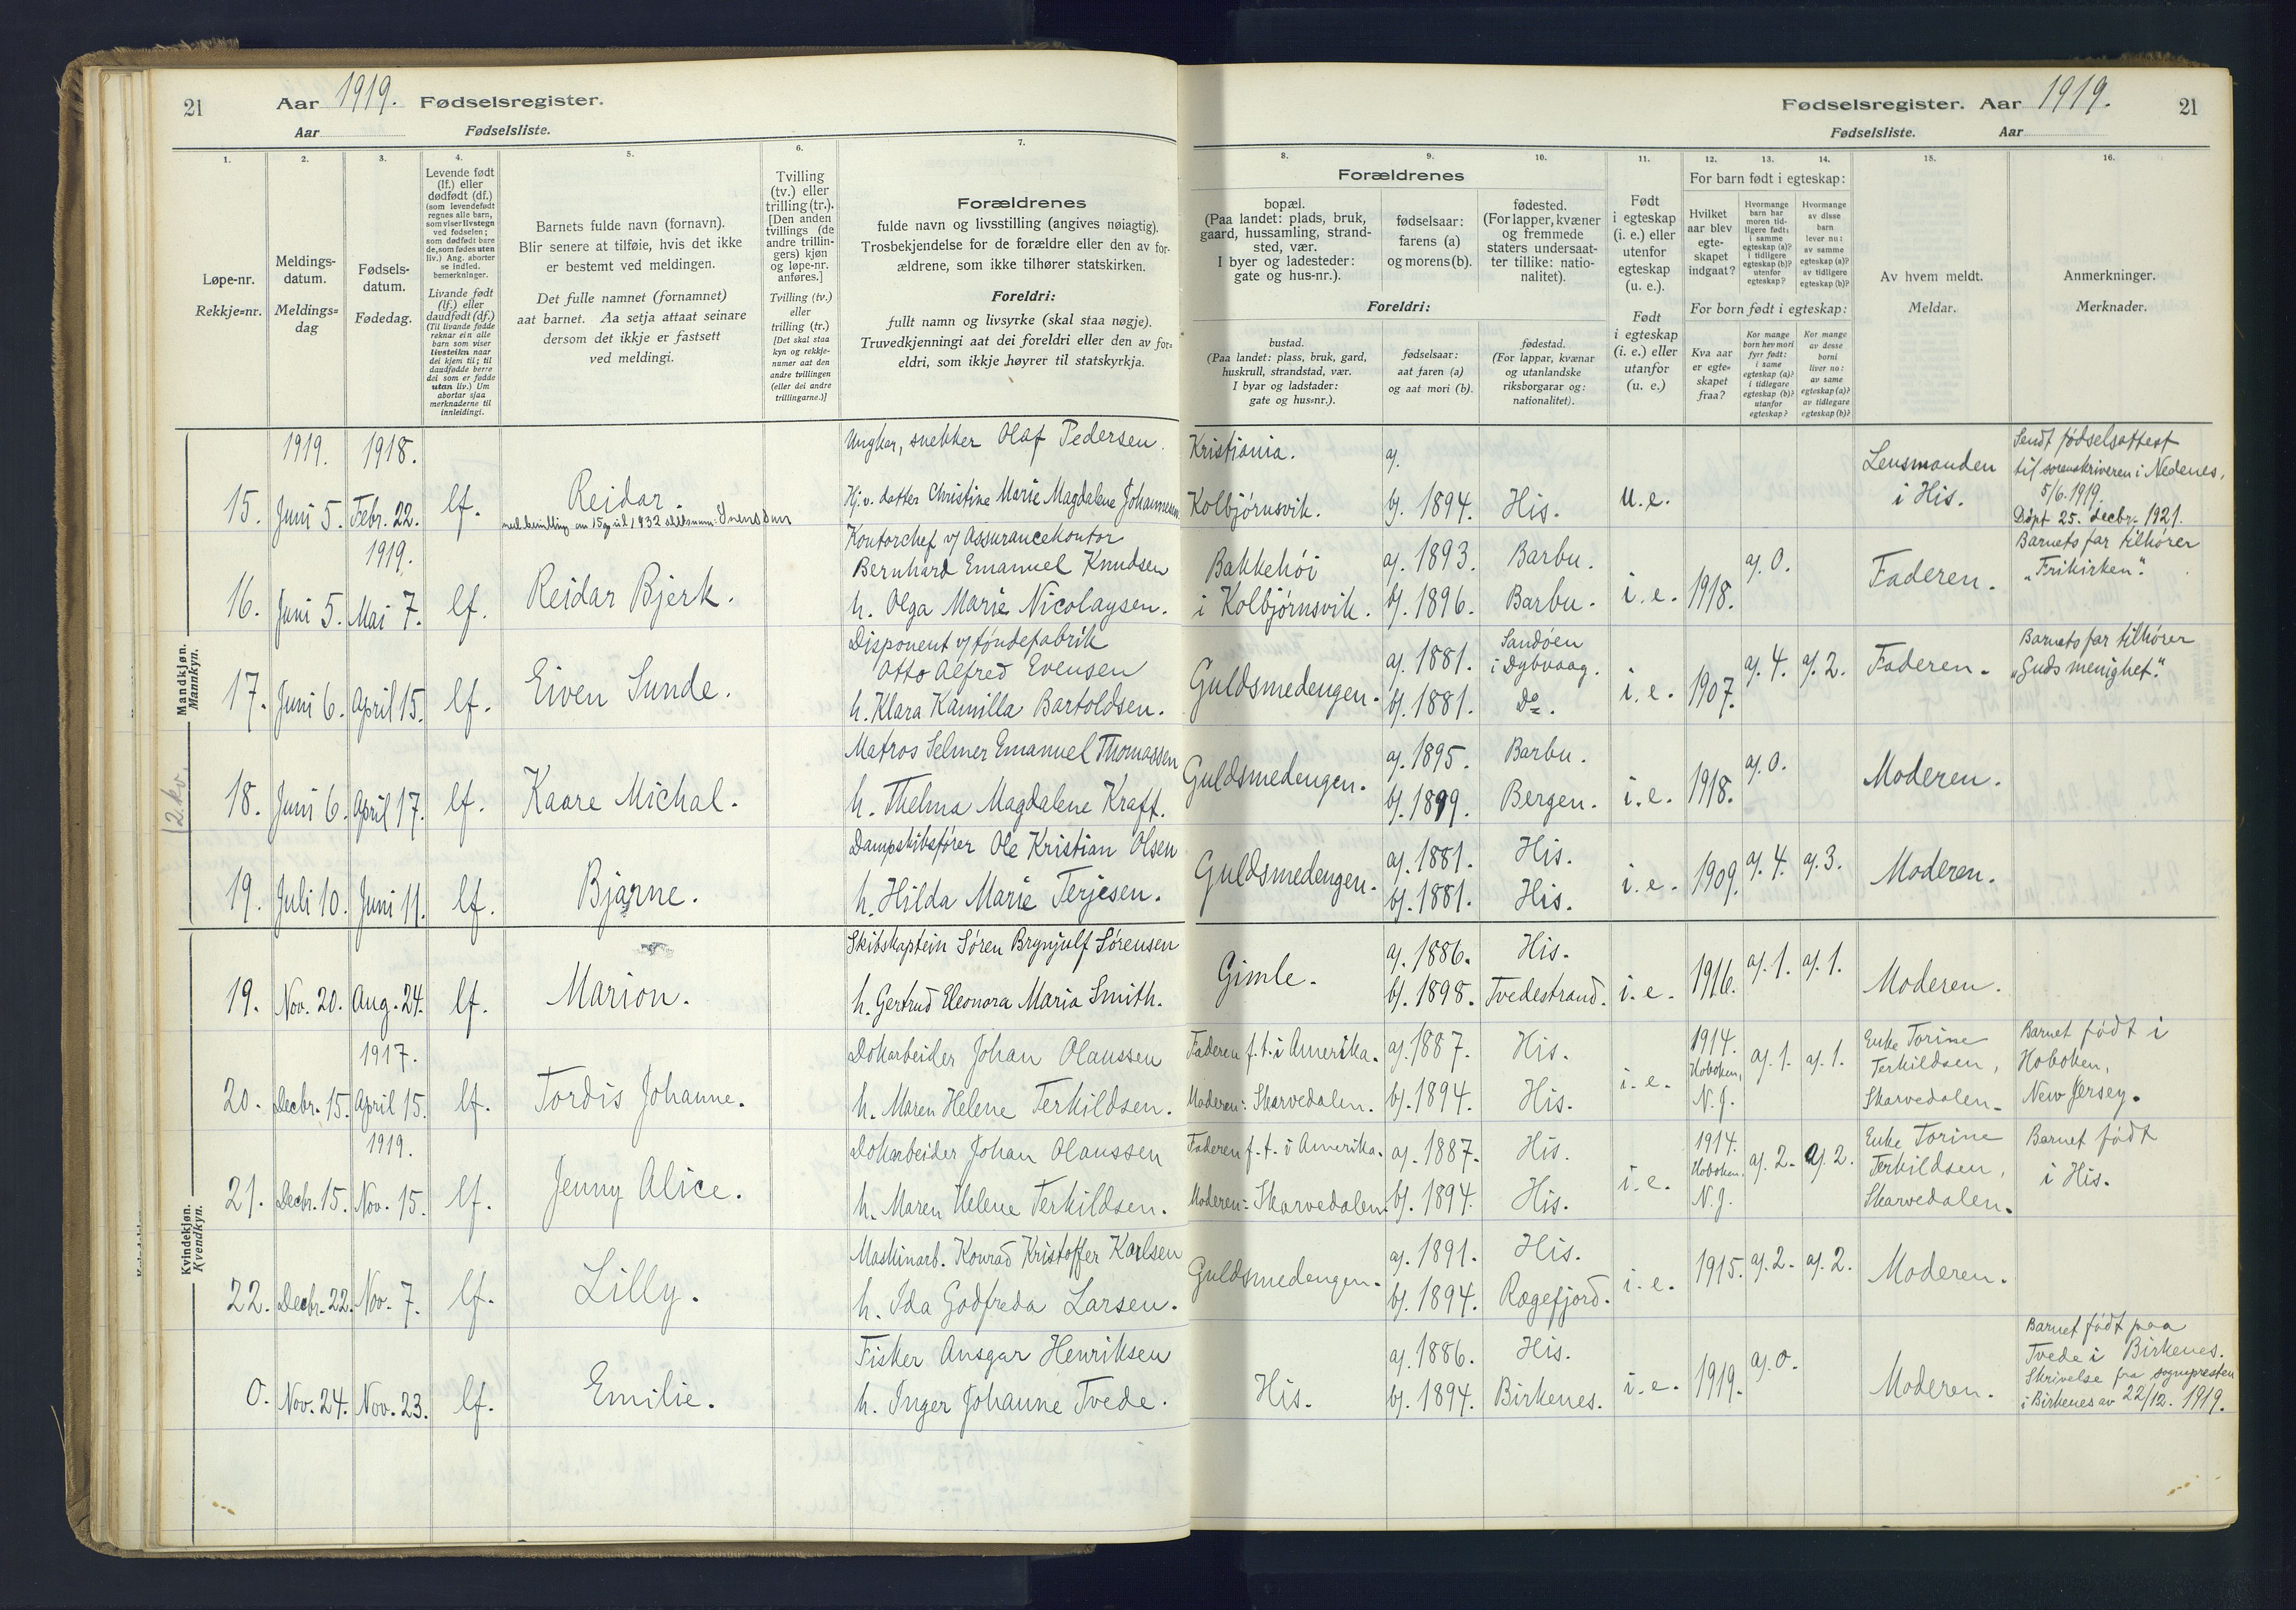 21
Aar 1919. Fødselsregister.
Aar Fødselsliste.
Fødselsregister. Aar 1919.
21
Fødselsliste. Aar
1.
Løpe-nr.
Rekkje=nr.
2.
Meldings-
datum.
Meldings=
dag
3.
Fødsels-
datum.
Fødedag.
4.
Levende født
(lf.) eller
dødfødt (df.)
(som levendefødt
regnes alle barn,
som viser livstegn
ved fødselen;
som dødfødt bare
de, som fødes uten
liv.) Ang. aborter
se indled.
bemerkninger.
Livande født
(lf.) eller
daudfødt (df.)
(Til livande fødde
reknar ein alle
barn som viser
livsteikn naar
dei kjem til; til
daudfødde berre
dei som er fødde
utan liv.) Um
abortar sjaa
merknaderne til
innleidingi.
5.
Barnets fulde navn (fornavn).
Blir senere at tilføie, hvis det ikke
er bestemt ved meldingen.
Det fulle namnet (fornamnet)
aat barnet. Aa setja attaat seinare
dersom det ikkje er fastsett
ved meldingi.
6.
Tvilling
(tv.) eller
trilling (tr.).
[Den anden
tvillings (de
andre trillin-
gers) kjøn
og løpe-nr.
anføres.]
Tvilling (tv.)
eller
trilling (tr.)
[Det skal staa
kyn og rekkje-
numer aat den
andre tvillingen
(eller dei andre
trillingarne.)]
7.
Forældrenes
fulde navn og livsstilling (angives nøiagtig).
Trosbekjendelse for de forældre eller den av for-
ældrene, som ikke tilhører statskirken.
Foreldri:
fullt namn og livsyrke (skal staa nøgje).
Truvedkjenningi aat dei foreldri eller den av for=
eldri, som ikkje høyrer til statskyrkja.
Forældrenes
8.
bopæl.
(Paa landet: plads, bruk,
gaard, hussamling, strand-
sted, vær.
I byer og ladesteder:
gate og hus-nr.).
9.
fødselsaar:
farens (a)
og morens (b).
10.
fødested.
(For lapper, kvæner
og fremmede
staters undersaat-
ter tillike: natio-
nalitet).
Foreldri:
bustad.
(Paa landet: plass, bruk, gard,
huskrull, strandstad, vær.
I byar og ladstader:
gate og hus=nr.).
fødselsaar:
aat faren (a)
og aat mori (b).
fødestad.
(For lappar, kvænar
og utanlandske
riksborgarar og:
nationalitet).
11.
Født
i egteskap
(i. e.) eller
utenfor
egteskap
(u. e.).
Født
i egteskap
(i. e.) eller
utanfor
(u. e.)
12. 13. 14.
For barn født i egteskap:
Hvilket
aar blev
egte-
skapet
indgaat?
Hvormange
barn har
moren tid-
ligere født:
i samme
egteskap (a)?
i tidligere
egteskap (b)?
utenfor
egteskap?
Hvormange
av disse
barn
lever nu:
av samme
egteskap (a)?
av tidligere
egteskap (b)?
For born født i egteskap:
Kva aar
er egte=
skapet
fraa?
Kor mange
born hev mori
fyrr født:
i same
egteskap (a)?
i tidlegare
egteskap (b)?
utanfor
egteskap?
Kor mange
av desse
borni
liver no:
av same
egteskap (a)?
av tidlegare
egteskap (b)?
15.
Av hvem meldt.
Meldar.
16.
Anmerkninger.
Merknader.
Mandkjøn.
Mannkyn.
2. kv.
1919. 1918.
15. Juni 5. Febr. 22. lf. Reidar.
Ungkar, snekker Olaf Pedersen.
Hj.v. datter Christine Marie Magdalene Johannesen
Kristiania. a).
Kolbjørnsvik. b). 1894. His. u.e.
Lensmanden
i His.
Sendt fødselsattest
til sorenskriveren i Nedenes,
5/6. 1919.
Døpt 25. decbr. 1921.
1919.
16. Juni 5. Mai 7. lf. Reidar Bjerk.
Kontorchef v/ Assurancekontor
Bernhard Emanuel Knudsen
h. Olga Marie Nicolaysen.
Bakkehøi
i Kolbjørnsvik.
a). 1893. Barbu.
b). 1896. Barbu. i.e. 1918. a). 0. Faderen.
Barnets far tilhører
"Frikirken".
17. Juni 6. April 15. lf. Eiven Sunde.
Disponent v/ tøndefabrik
Otto Alfred Evensen
h. Klara Kamilla Bartoldsen.
Guldsmedengen.
a). 1881. Sandøen
i Dybvaag.
b). 1881. Do. i.e. 1907. a). 4. a). 2. Faderen.
Barnets far tilhører
"Guds menighet".
18. Juni 6. April 17. lf. Kaare Michal.
Matros Selmer Emanuel Thomassen
h. Thelma Magdalene Kraft.
Guldsmedengen.
a). 1895. Barbu.
b). 1899. Bergen. i.e. 1918. a). 0. Moderen.
19. Juli 10. Juni 11. lf. Bjarne.
Dampskibsfører Ole Kristian Olsen
h. Hilda Marie Terjesen.
Guldsmedengen.
a). 1881. His.
b). 1881. His. i.e. 1909. a). 4. a). 3. Moderen.
Kvindekjøn.
Kvendkyn.
19. Nov. 20. Aug. 24. lf. Marion.
Skibskaptein Søren Brynjulf Sørensen
h. Gertrud Eleonora Maria Smith.
Gimle.
a). 1886. His.
b). 1898. Tvedestrand. i.e. 1916. a). 1. a). 1. Moderen.
1917.
20. Decbr. 15. April 15. lf. Tordis Johanne.
Dokarbeider Johan Olaussen
h. Maren Helene Terkildsen.
Faderen f.t. i Amerika. a). 1887. His.
Moderen: Skarvedalen. b). 1894. His. i.e.
1914.
Hoboken,
N.J.
a). 1. a). 1.
Enke Torine
Terkildsen,
Skarvedalen.
Barnet født i
Hoboken,
New Jersey.
1919.
21. Decbr. 15. Nov. 15. lf. Jenny Alice.
Dokarbeider Johan Olaussen
h. Maren Helene Terkildsen.
Faderen f.t. i Amerika. a). 1887. His.
Moderen: Skarvedalen. b). 1894. His. i.e.
1914.
Hoboken,
N.J.
a). 2. a). 2.
Enke Torine
Terkildsen,
Skarvedalen.
Barnet født
i His.
22. Decbr. 22. Nov. 7. lf. Lilly.
Maskinarb. Konrad Kristoffer Karlsen
h. Ida Godfreda Larsen.
Guldsmedengen.
a). 1891. His.
b). 1894. Rægefjord. i.e. 1915. a). 2. a). 2. Moderen.
0. Nov. 24. Nov. 23. lf. Emilie.
Fisker Ansgar Henriksen
h. Inger Johanne Tvede.
His.
a). 1886. His.
b). 1894. Birkenes. i.e. 1919. a). 0. Moderen.
Barnet født paa
Tvede i Birkenes.
Skrivelse fra sognepresten
i Birkenes av 22/12. 1919.